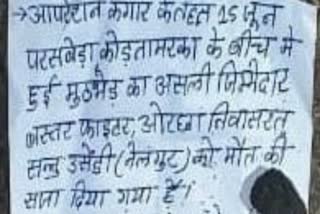 → आपरेशन कगार के तहत 15 जून
परसबेड़ा कोड़तामरका के बीच मे
हुई मुठभेड़ का असली जिम्मेदार
बस्तर फाइटर, ओरछा निवासरत
सन्तु उसेंडी (नेलगुट) को मौत की
सजा दिया गया है।